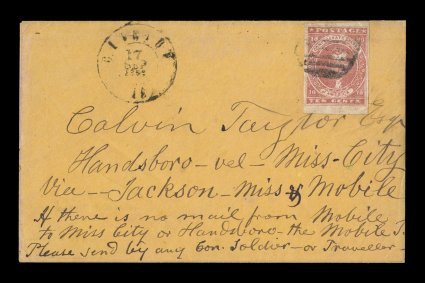 17
POSTAGE
TEN CENTS
Calvin Taylor Esq
Handsboro - vel - Miss-City
Via - Jackson - Miss & Mobile
If there is no mail from Mobile
to Miss City or Handsboro - the Mobile
Please send by any Con. Soldier - or Traveller -